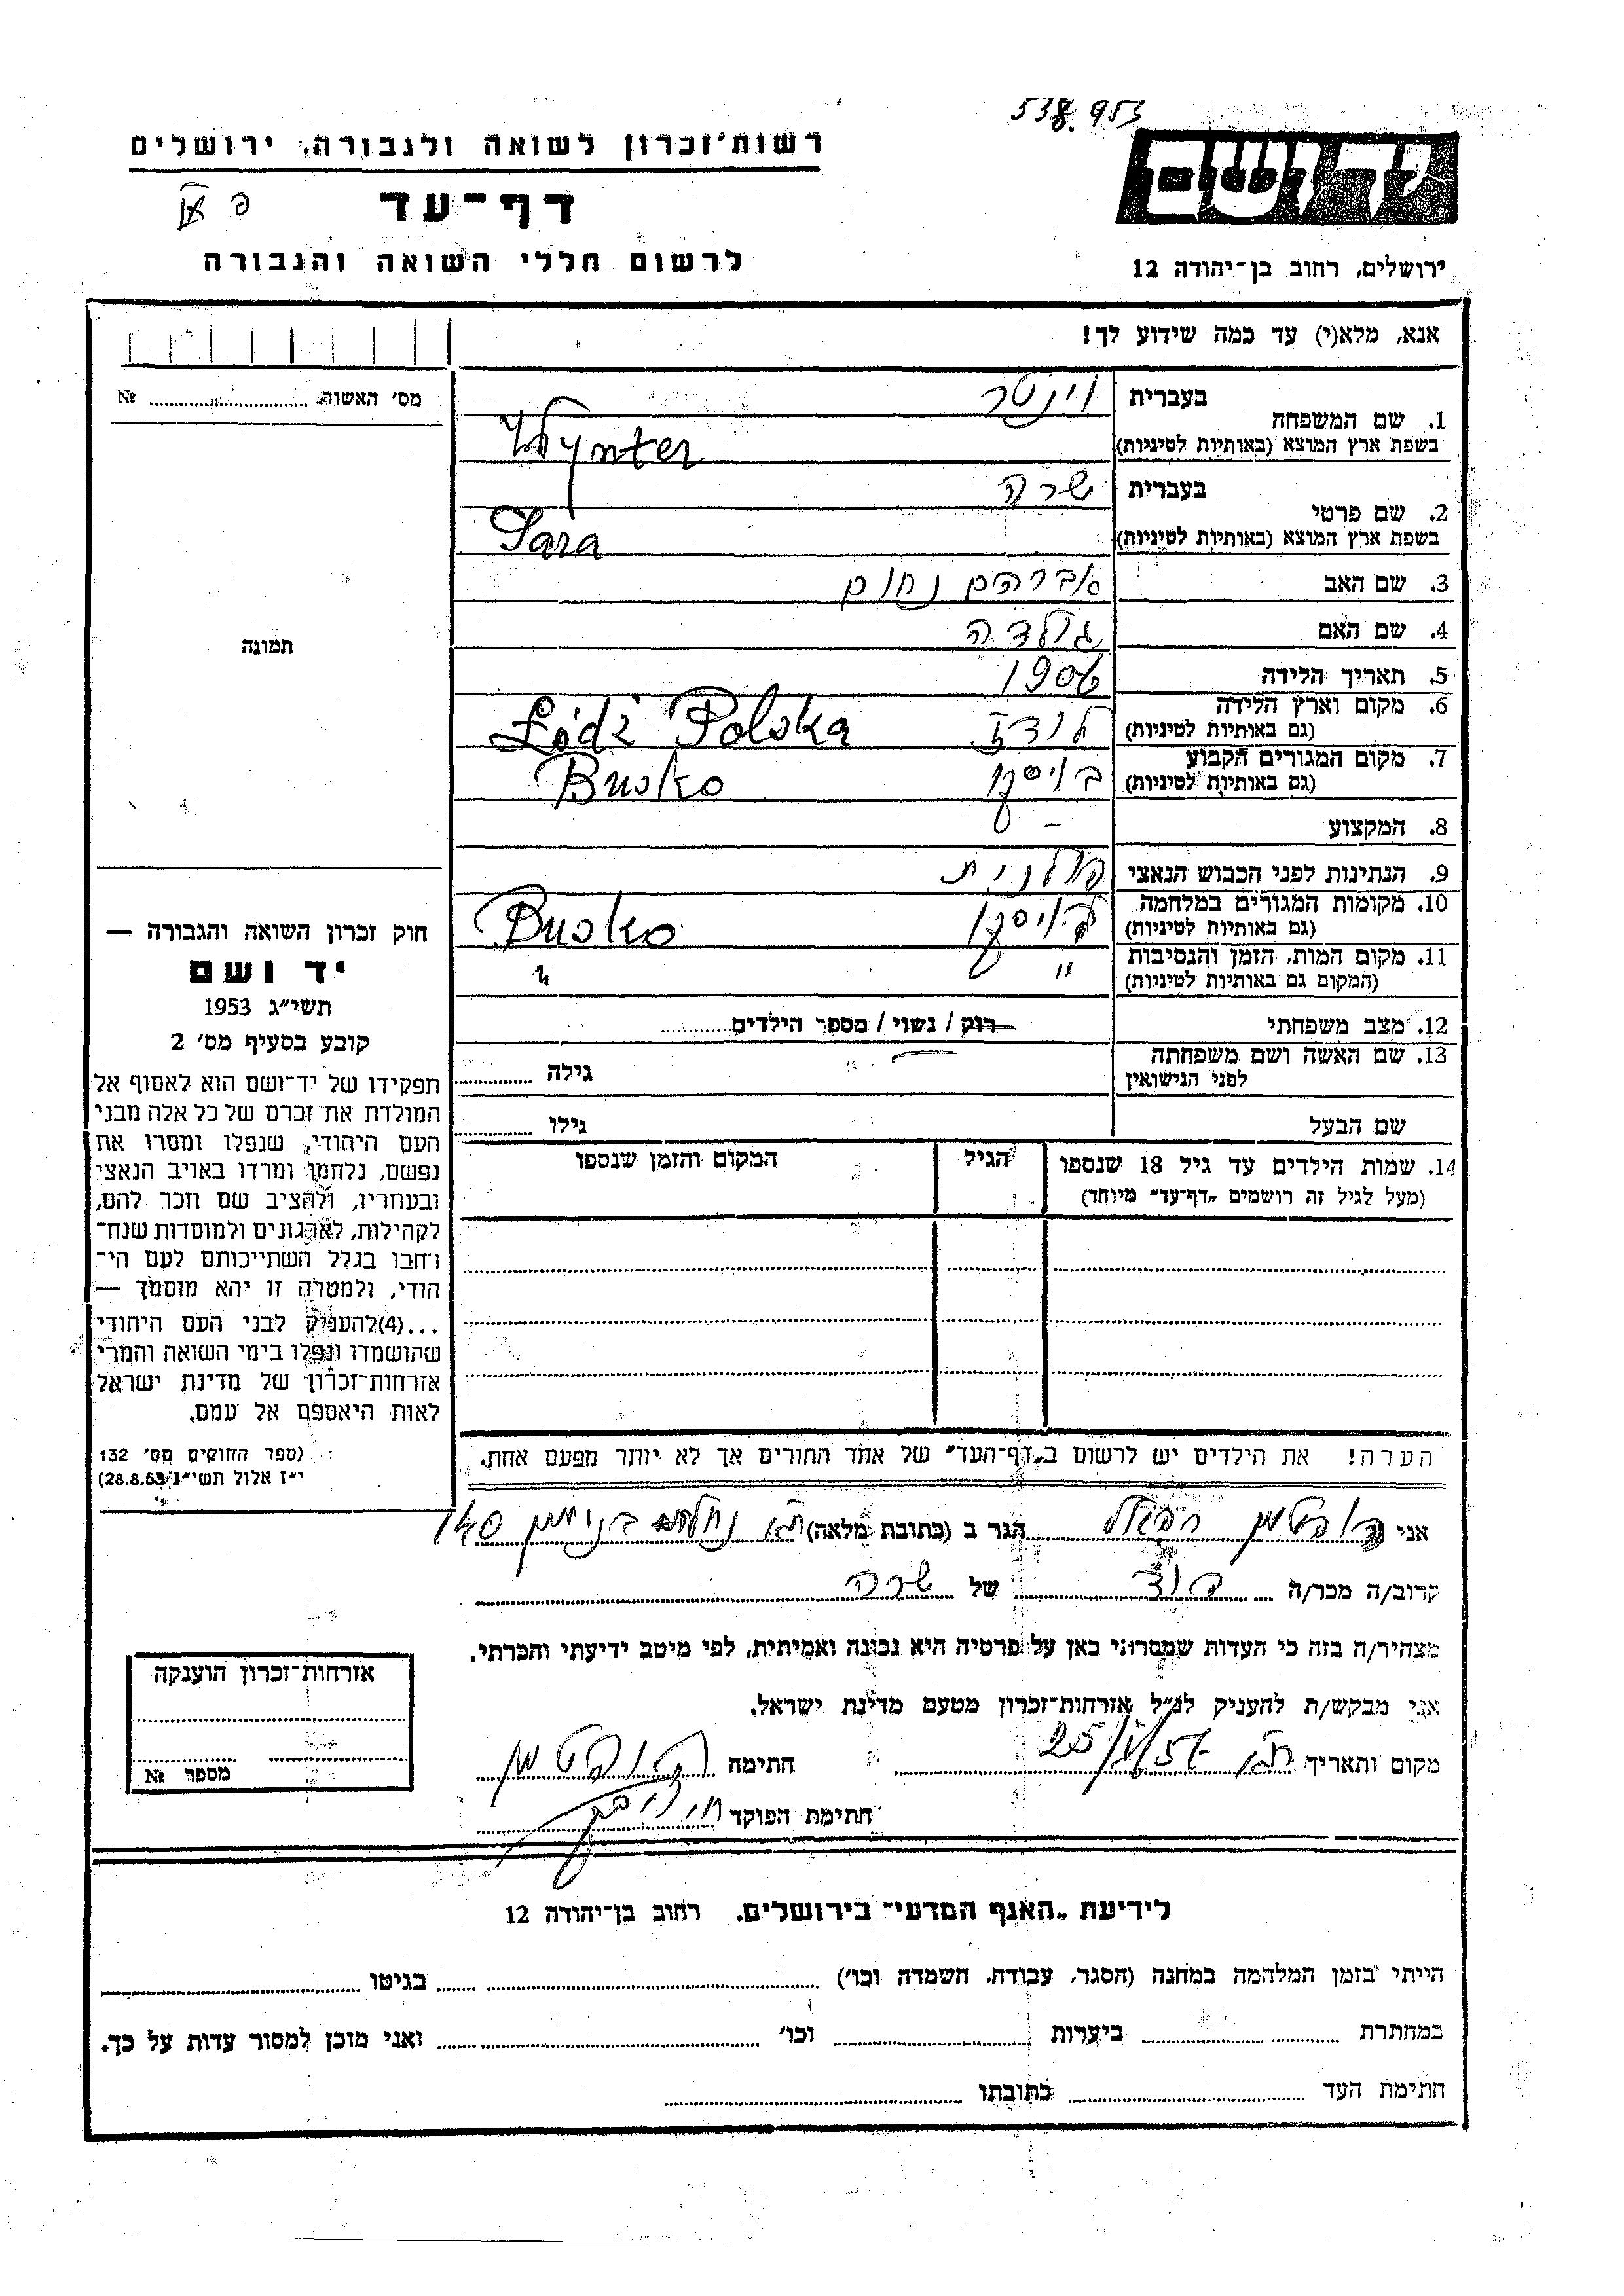 538.953
רשות־זכרון לשואה ולגבורה, ירושלים
יד ושם
דף־עד
לרשום חללי השואה והגבורה
ירושלים, רחוב בן־יהודה 12
אנא, מלא(י) עד כמה שידוע לך!
מס׳ האשור ........ №
1. שם המשפחה בעברית וינטר
בשפת ארץ המוצא (באותיות לטיניות) Wynter
2. שם פרטי בעברית שרה
בשפת ארץ המוצא (באותיות לטיניות) Sara
3. שם האב אברהם נחום
4. שם האם גולדה
תמונה
5. תאריך הלידה 1906
6. מקום וארץ הלידה (גם באותיות לטיניות) לודז Łódź Polska
7. מקום המגורים הקבוע (גם באותיות לטיניות) בויסקו Busko
8. המקצוע –
9. הנתינות לפני הכבוש הנאצי פולנית
10. מקומות המגורים במלחמה (גם באותיות לטיניות) בויסקו Busko
11. מקום המות, הזמן והנסיבות (המקום גם באותיות לטיניות) " "
12. מצב משפחתי רוק / נשוי / מספר הילדים........
13. שם האשה ושם משפחתה לפני הנישואין גילה ........
שם הבעל גילו ........
14. שמות הילדים עד גיל 18 שנספו הגיל המקום והזמן שנספו
(מעל לגיל זה רושמים „דף־עד” מיוחד)
חוק זכרון השואה והגבורה —
יד ושם
תשי״ג 1953
קובע בסעיף מס׳ 2
תפקידו של יד־ושם הוא לאסוף אל
המולדת את זכרם של כל אלה מבני
העם היהודי, שנפלו ומסרו את
נפשם, נלחמו ומרדו באויב הנאצי
ובעוזריו, ולהציב שם וזכר להם,
לקהילות, לארגונים ולמוסדות שנח־
רחבו בגלל השתייכותם לעם הי־
הודי, ולמטרה זו יהא מוסמך —
...(4)להעניק לבני העם היהודי
שהושמדו ונפלו בימי השואה והמרי
אזרחות־זכרון של מדינת ישראל
לאות היאספם אל עמם.
(ספר החוקים מס׳ 132
י״ז אלול תשי״ג 28.8.53)
הערה! את הילדים יש לרשום ב„דף־העד” של אחד ההורים אך לא יותר מפעם אחת.
אני הופטמן הגר ב (כתובת מלאה) נחלת בנימין 140
קרוב/ה מכר/ה דוד של שרה
מצהיר/ה בזה כי העדות שמסרתי כאן על פרטיה היא נכונה ואמיתית, לפי מיטב ידיעתי והכרתי.
אני מבקש/ת להעניק לנ״ל אזרחות־זכרון מטעם מדינת ישראל.
מקום ותאריך חתימה הופטמן
חתימת הפוקד
אזרחות־זכרון הוענקה
מספר №
לידיעת „האגף המדעי” בירושלים, רחוב בן־יהודה 12
הייתי בזמן המלהמה במחנה (הסגר, עבודה, השמדה וכו׳) ........ בגיטו ........
במחתרת ........ ביערות ........ וכו׳ ........ ואני מוכן למסור עדות על כך.
חתימת העד ........ כתובתו ........